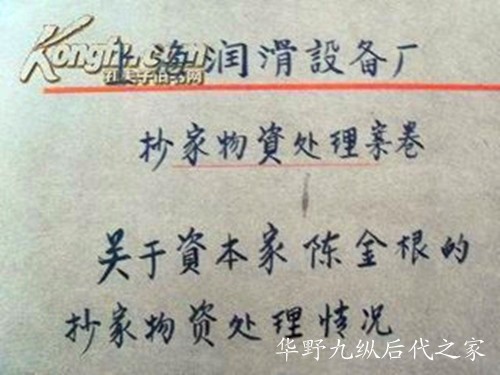 Kongfz.com
孔夫子旧书网
上海润滑設备厂
抄家物資处理案卷
关于資本家陈金根的
抄家物资处理情况
华野九纵后代之家